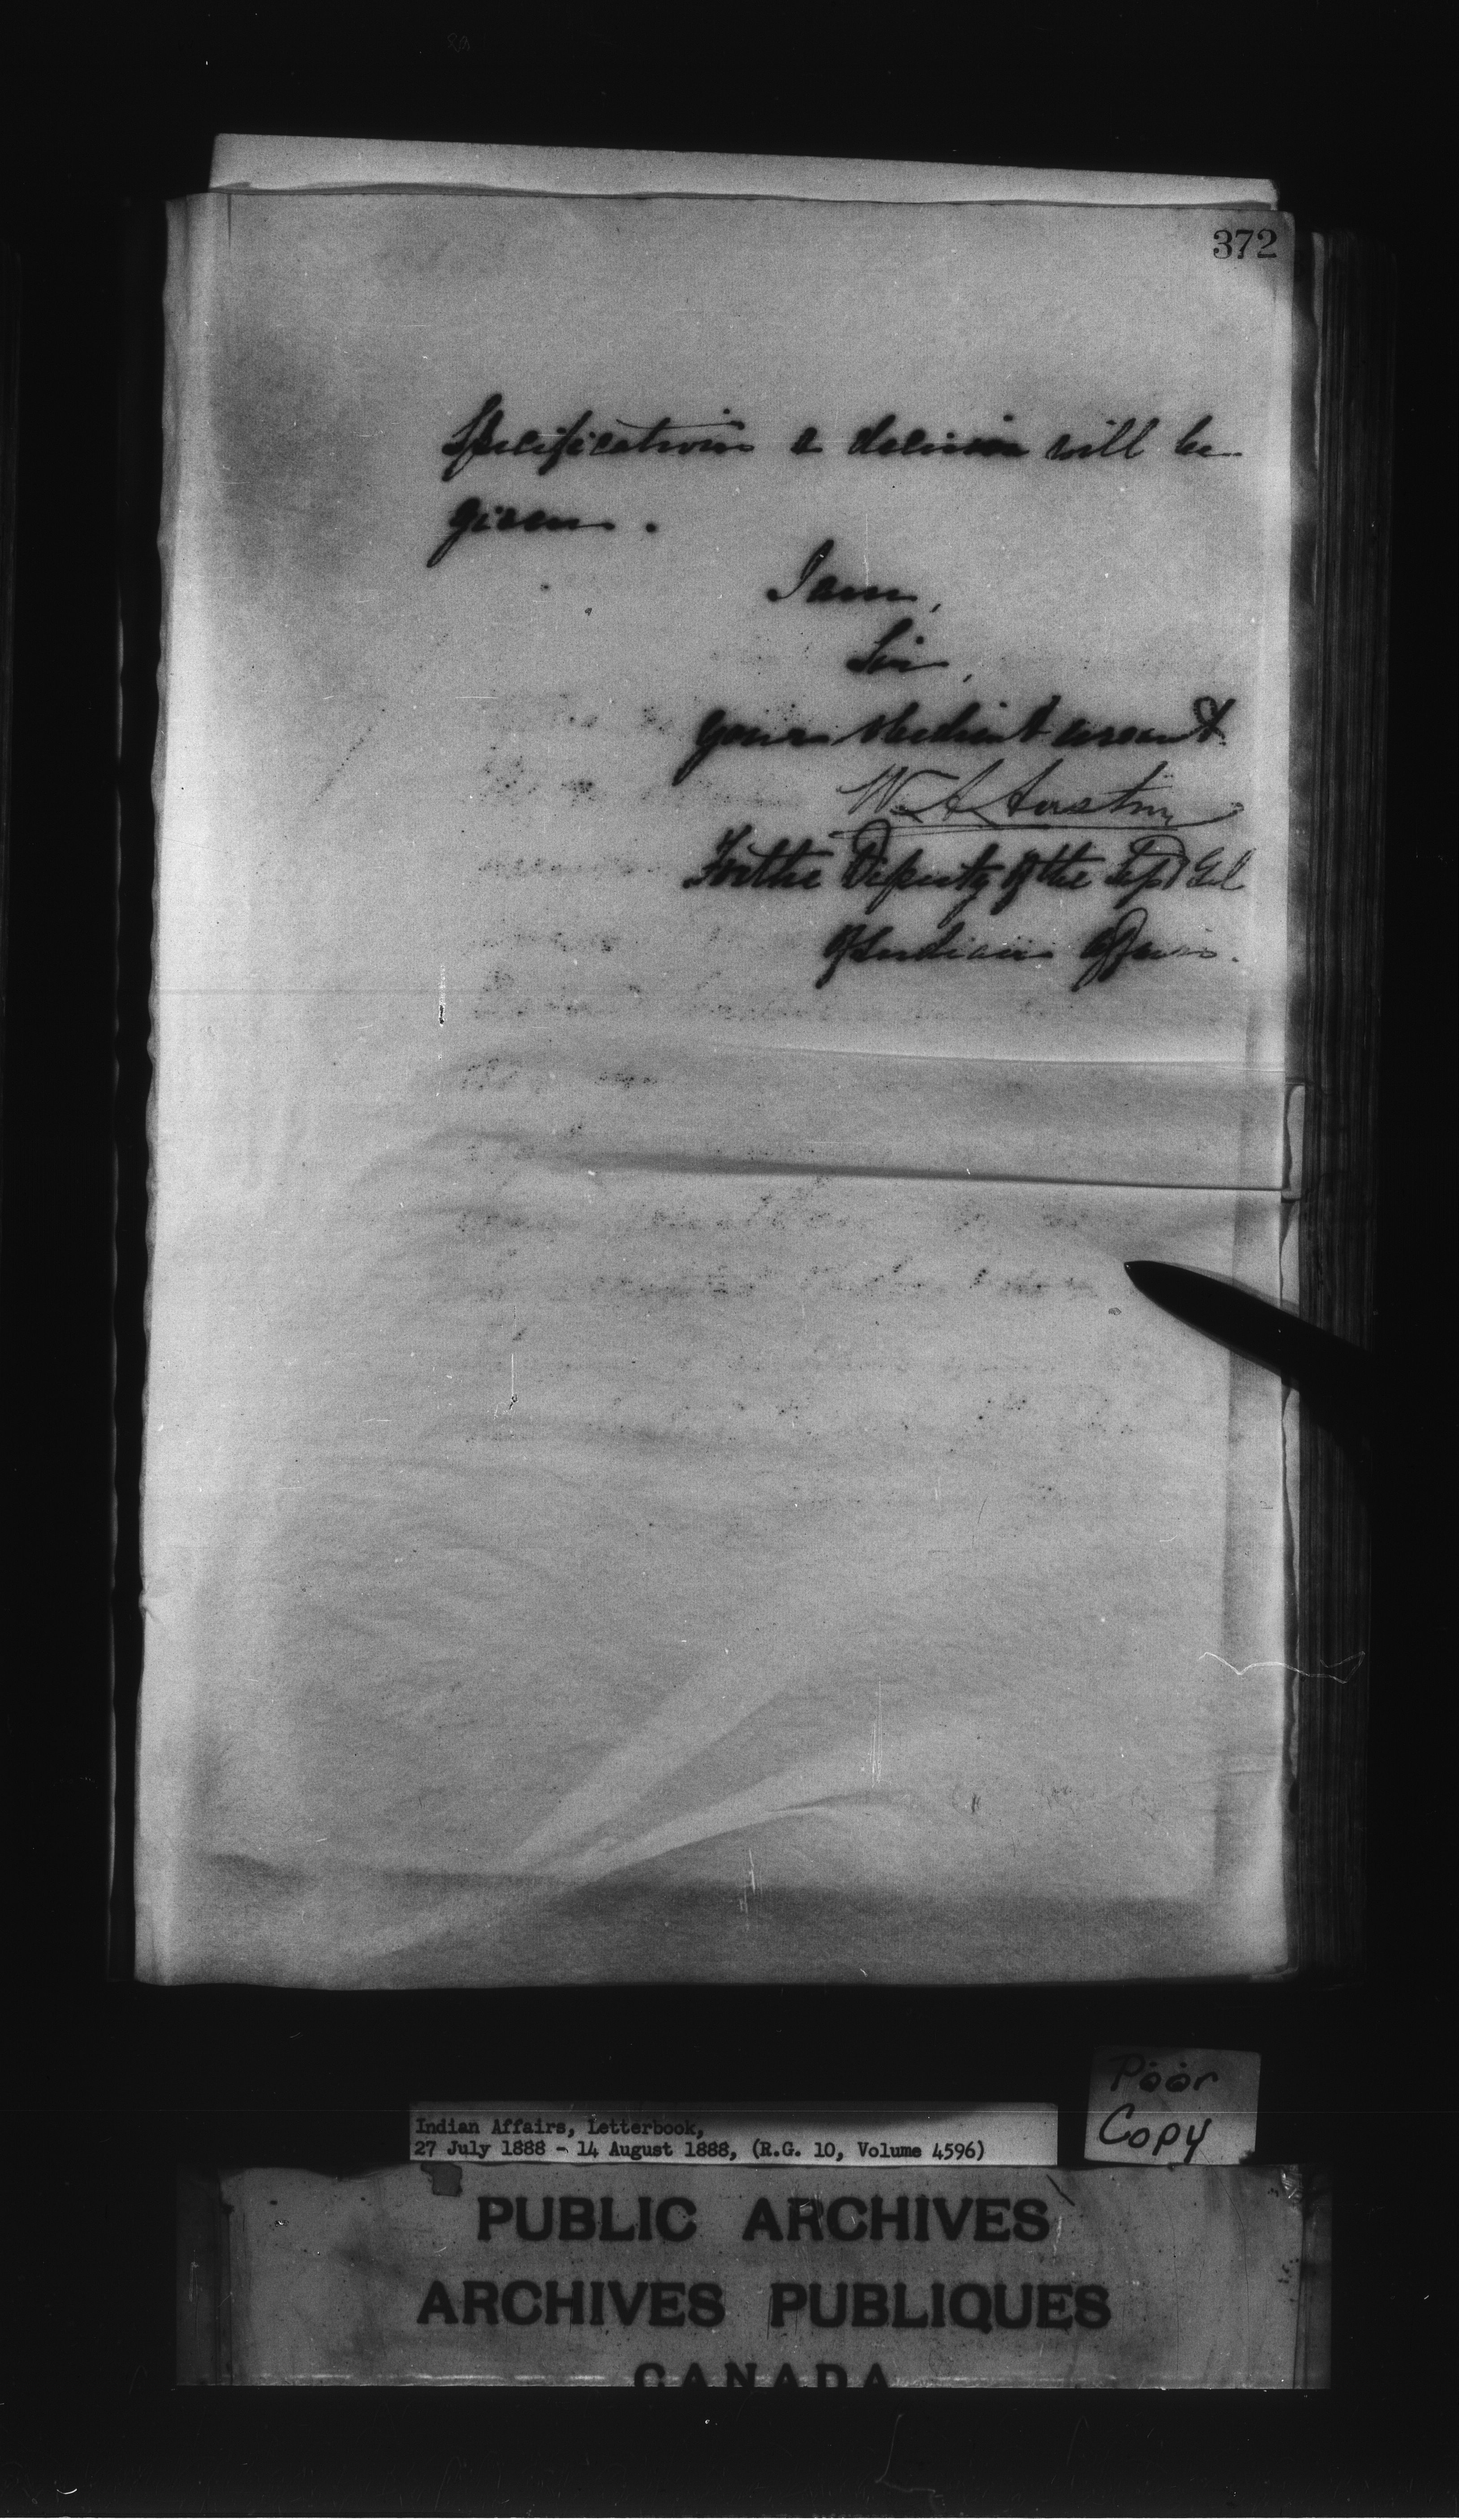 372
Specifications a decision will be
given.
I am,
Sir,
Your obedient servant.
W. A. Austin
For the Deputy of the Supt Genl
of Indian Affairs.
Poor
Copy
Indian Affairs, Letterbook,
27 July 1888 - 14 August 1888, (R.G. 10, Volume 4596)
PUBLIC ARCHIVES
ARCHIVES PUBLIQUES
CANADA